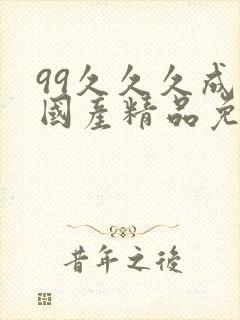 99久久久成
國產精品免
昔年之後